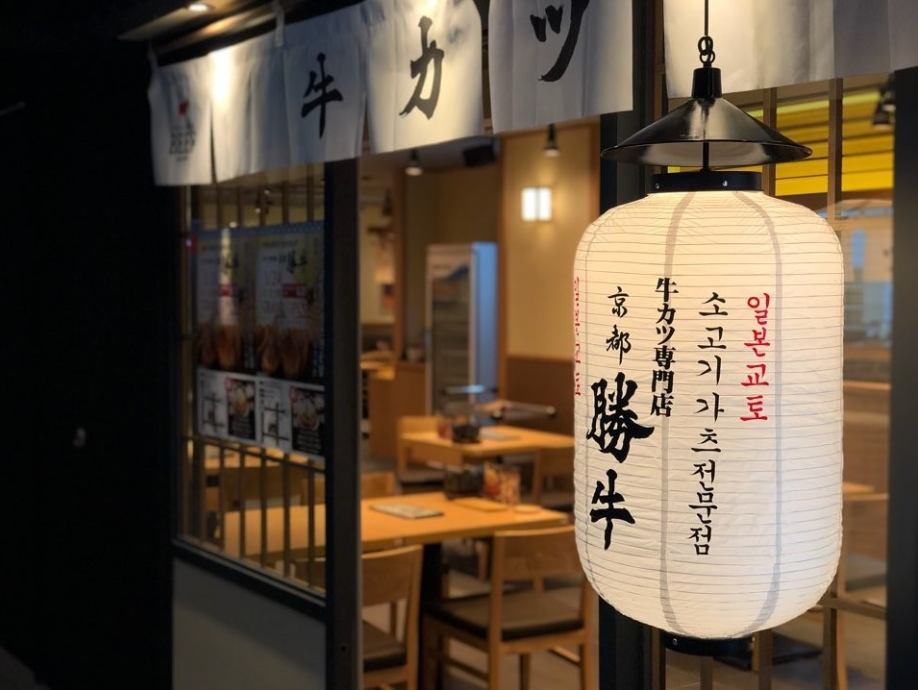 牛カツ
일본교토
소고기가츠전문점
牛カツ専門店
京都
勝牛
일본교토